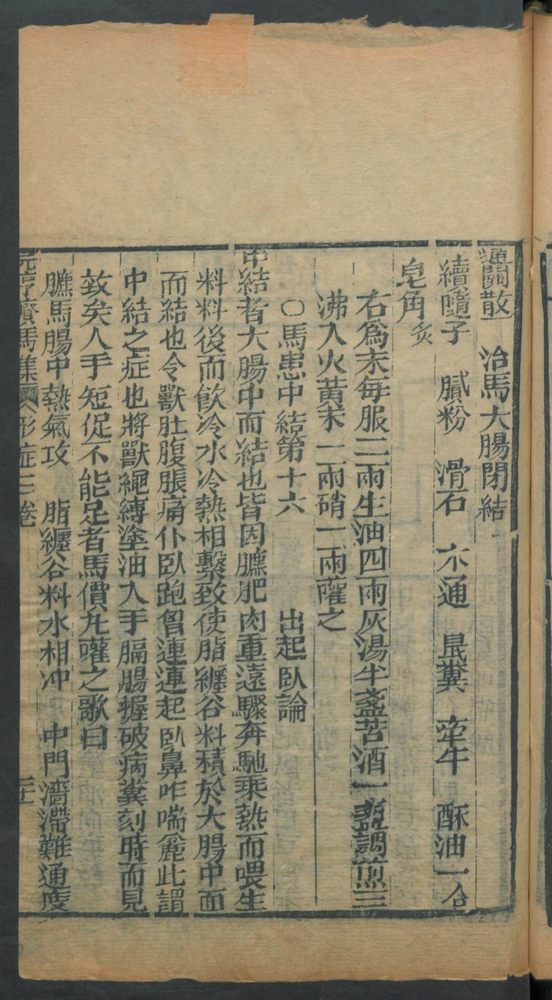 通關散　治馬大腸閉結
續隨子　膩粉　滑石　木通　鼠糞　牽牛　酥油一合
皂角炙
右爲末每服二兩生油四兩灰湯半盞苦酒一盞調煎三
沸入火黃末一兩硝一兩灌之
○馬患中結第十六　出起臥論
中結者大腸中而結也皆因臕肥肉重遠驟奔馳乘熱而喂生
料料後而飲冷水冷熱相擊致使脂纒谷料積於大腸中而
而結也令獸肚腹脹痛仆臥跑胷連連起臥鼻咋喘麄此謂
中結之症也將獸繩縛塗油入手膈腸握破病糞刻時而見
效矣人手短促不能足者馬價丸嚾之歌曰
臕馬腸中熱氣攻　脂纒谷料水相冲　中門濇滯難通度
元亨療馬集　形症三卷